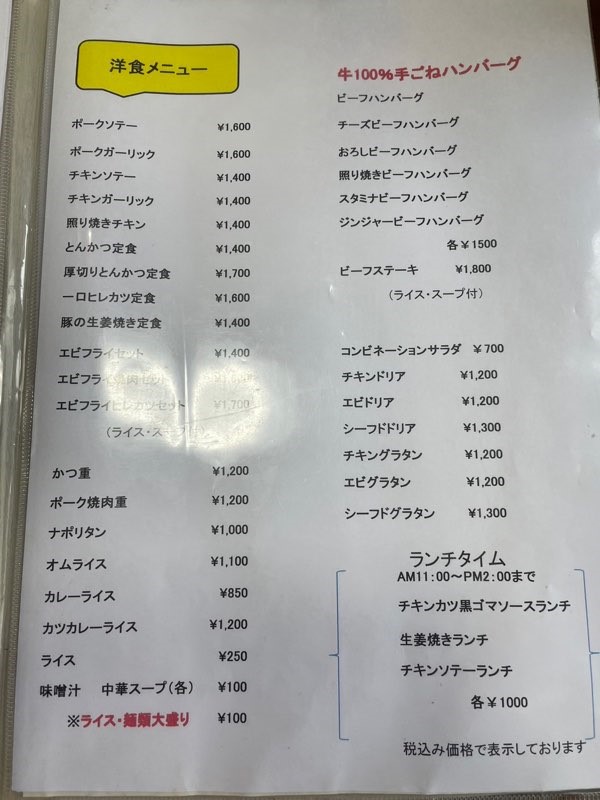 洋食メニュー
ポークソテー ¥1,600
ポークガーリック ¥1,600
チキンソテー ¥1,400
チキンガーリック ¥1,400
照り焼きチキン ¥1,400
とんかつ定食 ¥1,400
厚切りとんかつ定食 ¥1,700
一口ヒレカツ定食 ¥1,600
豚の生姜焼き定食 ¥1,400
エビフライセット ¥1,400
エビフライ焼肉セット
エビフライヒレカツセット ¥1,700
(ライス・スープ付)
かつ重 ¥1,200
ポーク焼肉重 ¥1,200
ナポリタン ¥1,000
オムライス ¥1,100
カレーライス ¥850
カツカレーライス ¥1,200
ライス ¥250
味噌汁 中華スープ(各) ¥100
※ライス・麺類大盛り ¥100
牛100%手ごねハンバーグ
ビーフハンバーグ
チーズビーフハンバーグ
おろしビーフハンバーグ
照り焼きビーフハンバーグ
スタミナビーフハンバーグ
ジンジャービーフハンバーグ
各¥1500
ビーフステーキ ¥1,800
(ライス・スープ付)
コンビネーションサラダ ¥700
チキンドリア ¥1,200
エビドリア ¥1,200
シーフドドリア ¥1,300
チキングラタン ¥1,200
エビグラタン ¥1,200
シーフドグラタン ¥1,300
ランチタイム
AM11:00~PM2:00まで
チキンカツ黒ゴマソースランチ
生姜焼きランチ
チキンソテーランチ
各¥1000
税込み価格で表示しております